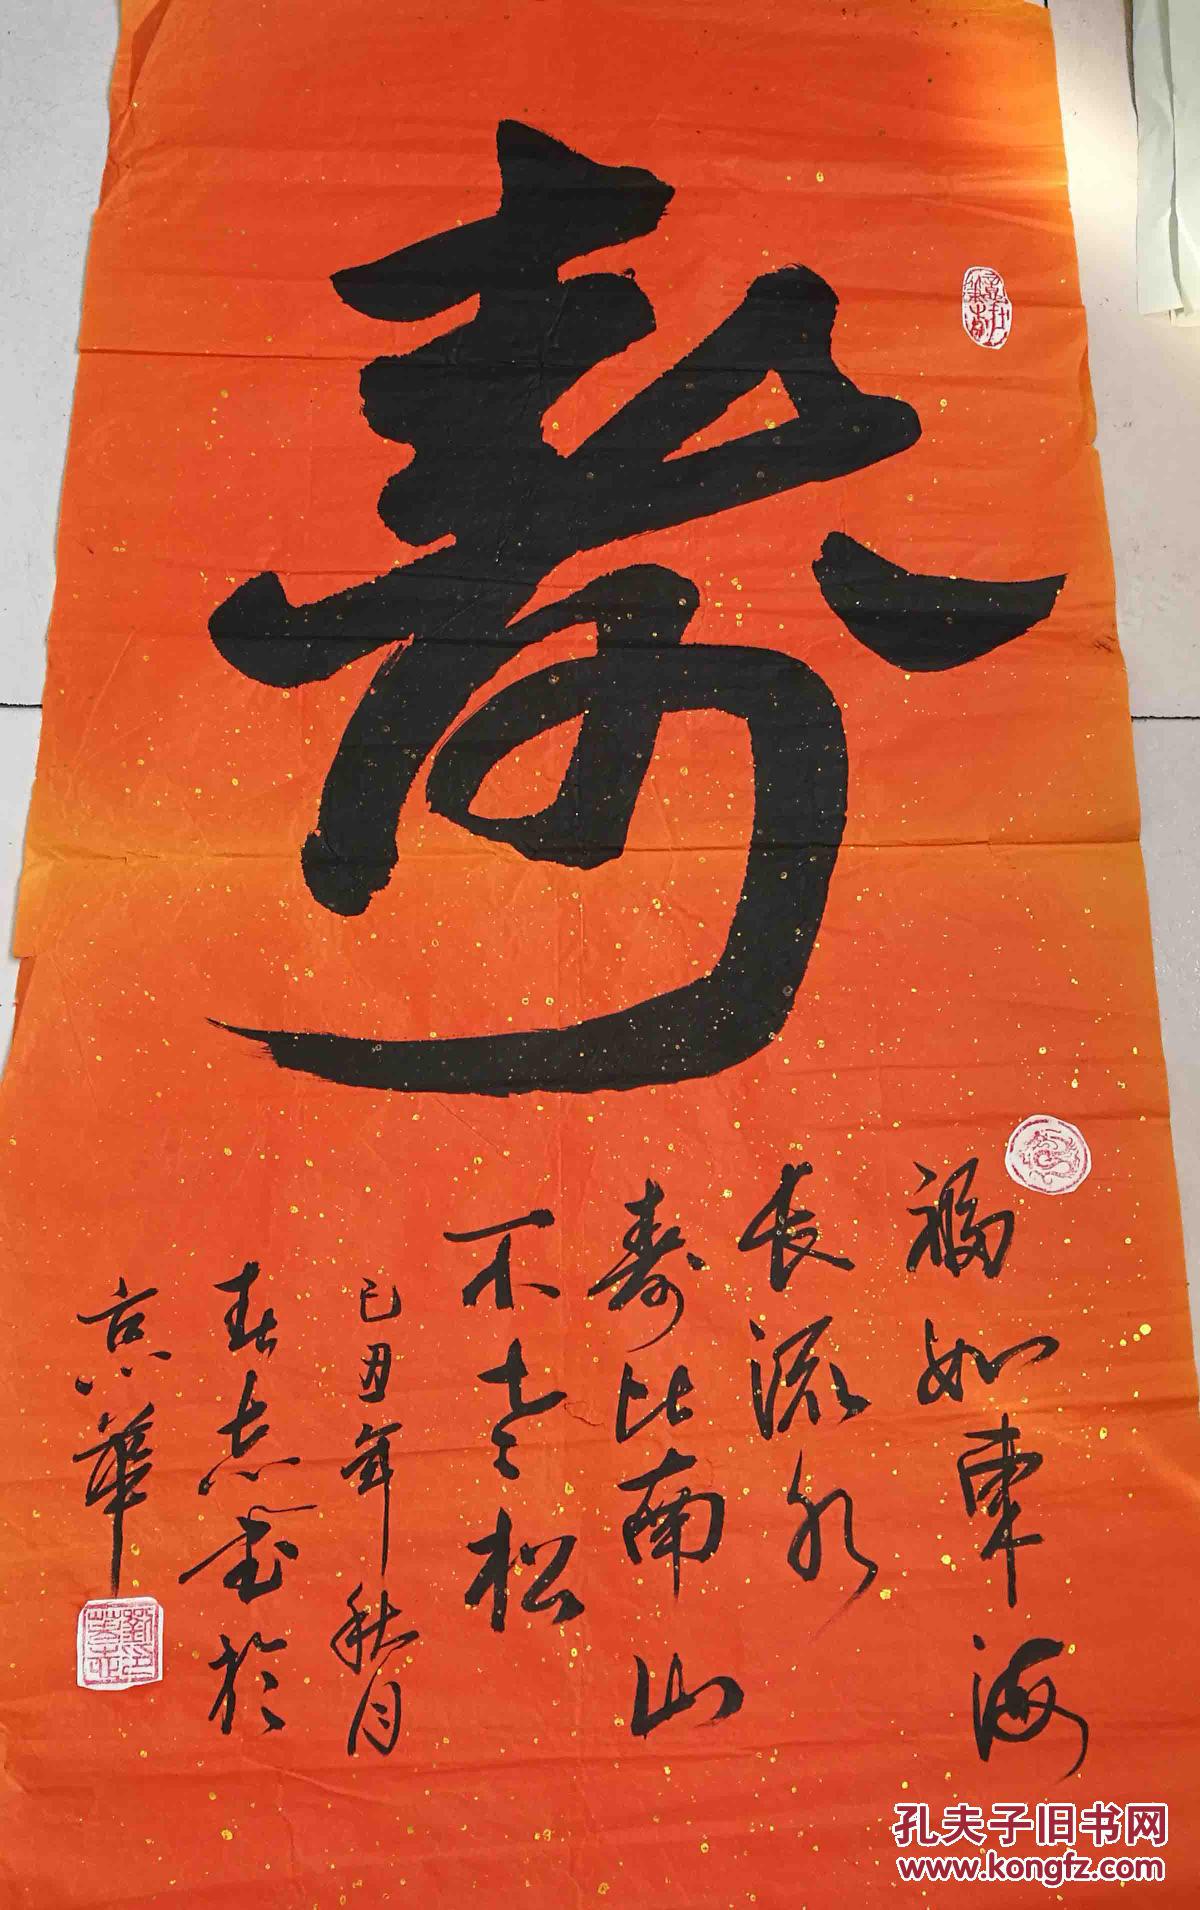 壽
福如東海
長流水
壽比南山
不老松
己丑年秋月
志書於
京華
孔夫子旧书网
www.kongfz.com